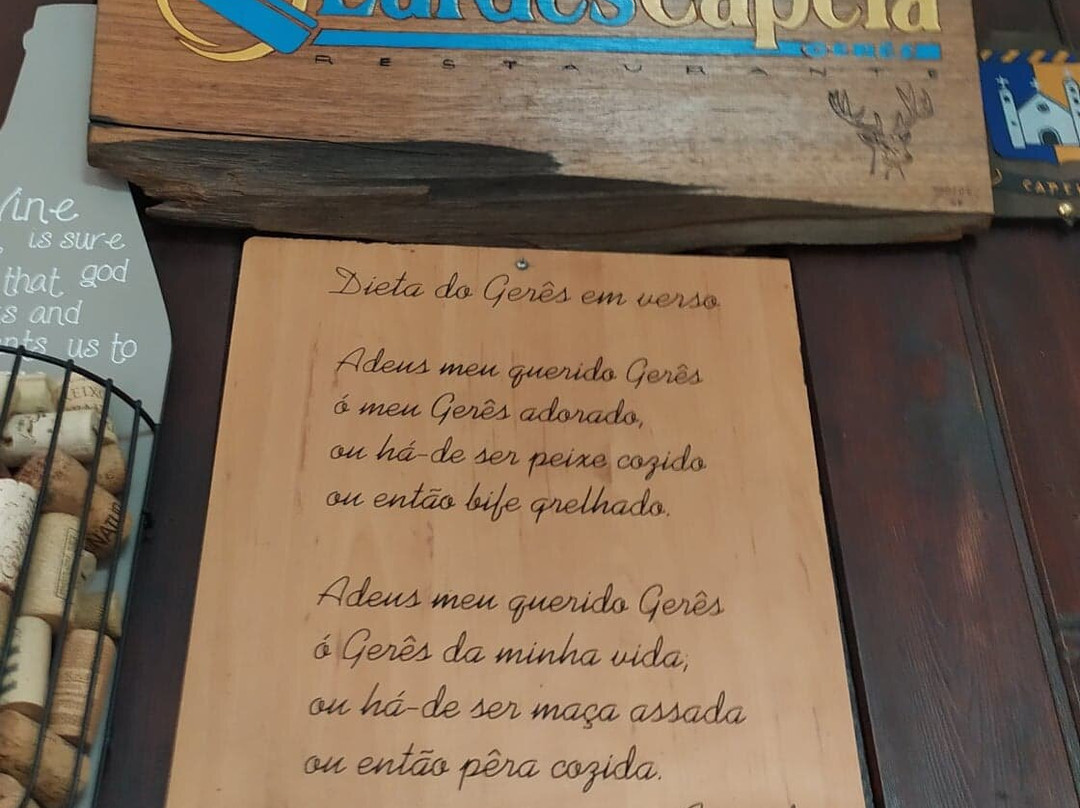 Lurdes Capela
GERÊS
RESTAURANTE
Wine
is sure
that god
and
us to
Dieta do Gerês em verso
Adeus meu querido Gerês
ó meu Gerês adorado,
ou há-de ser peixe cozido
ou então bife grelhado.
Adeus meu querido Gerês
ó Gerês da minha vida,
ou há-de ser maça assada
ou então pêra cozida.